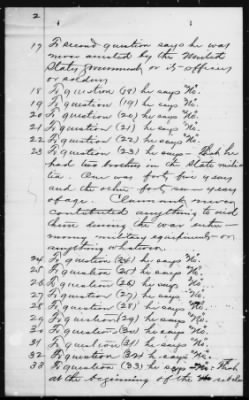 2
17 To second question says he was
never arrested by the United
States government or its officers
or soldiers
18 To question (18) he says "No".
19 To question (19) he says "No.
20 To question (20) he says "No.
21 To question (21) he says "No.
22 To question (22) he says "No.
23 To question (23) he says - That he
had two brothers in the State mili-
tia. One was forty five years
and the other forty years
of age. Claimant never
contributed anything to aid
them during the war either
money military equipments or
anything whatever.
24 To question (24) he says "No".
25 To question (25) he says "No".
26 To question (26) he says "No".
27 To question (27) he says "No.
28 To question (28) he says "No".
29 To question (29) he says "No".
30 To question (30) he says "No".
31 To question (31) he says "No.
32 To question (32) he says "No.
33 To question (33) he says That
at the beginning of the rebellion